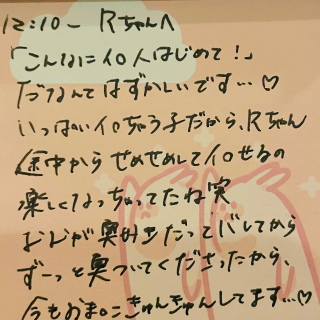 12:10〜 Rちゃんへ
「こんなにイロ人はじめて！」
だなんてはずかしいです…♡
いっぱいイロちゃう子だから、Rちゃん
途中からせめせめしてイロせるの
楽しくなっちゃってたね実
おじが奥好きだってバレてから
ずーっと奥ついてくださったから、
今もおま○こきゅんきゅんしてます…♡